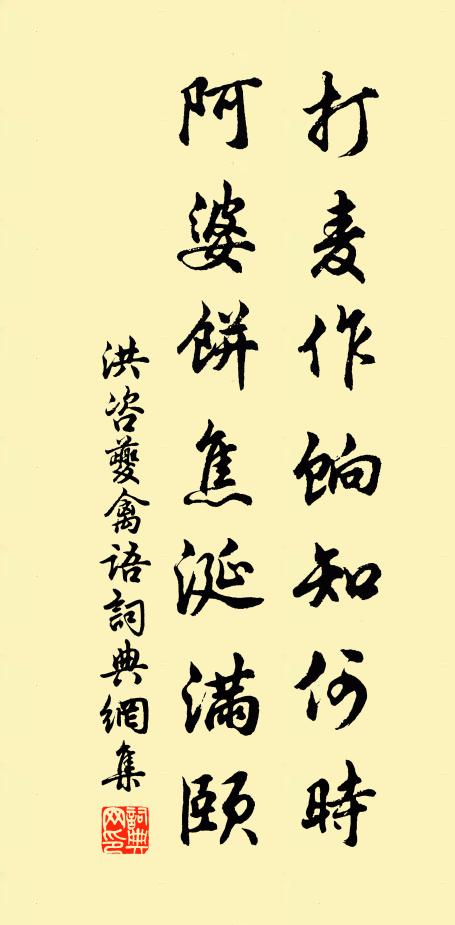 打麦作餉知何時
阿婆餅焦涎满頤
洪咨夔禽语詞典網集
詞典網印